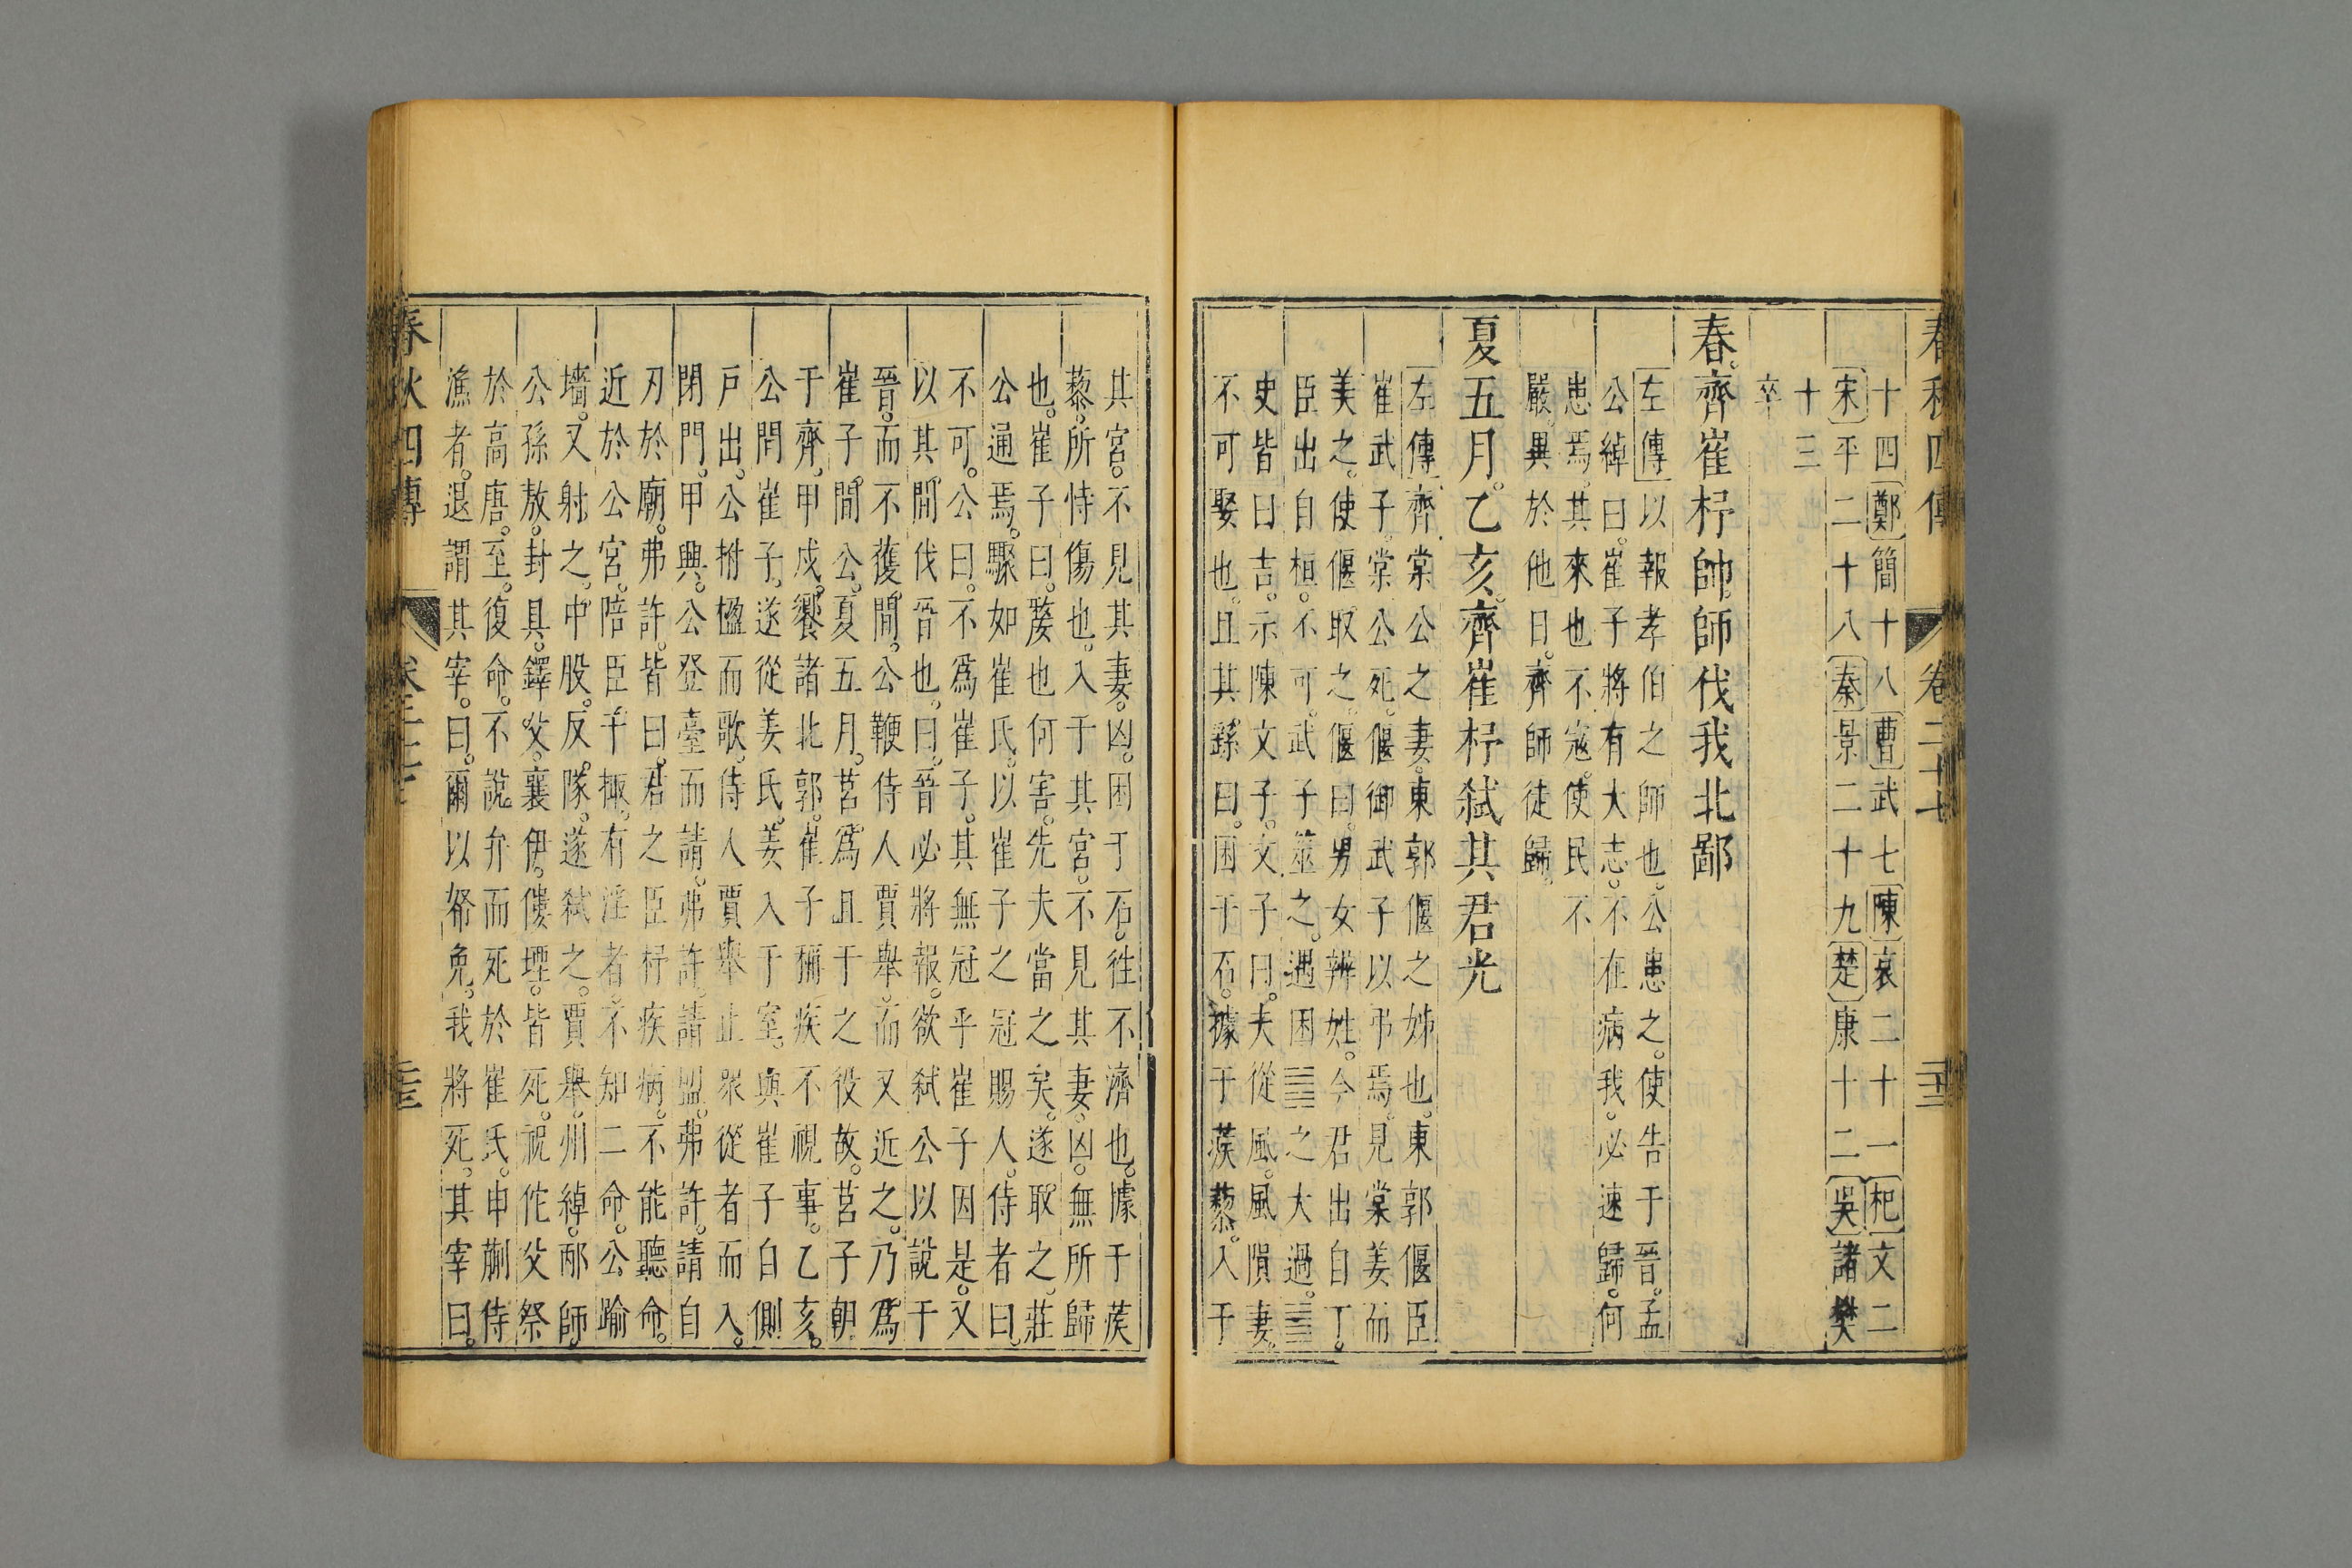 春秋四傳 卷二十七
十四鄭簡十八曹武七陳哀二十一杞文二
宋平二十八秦景二十九楚康十二吳諸樊
十三
卒
春。齊崔杼帥師伐我北鄙
左傳以報孝伯之師也。公患之。使告于晉。孟
公綽曰。崔子將有大志。不在病我。必速歸。何
患焉。其來也不寇。使民不
嚴。異於他日。齊師徒歸。
夏五月。乙亥。齊崔杼弒其君光
左傳齊棠公之妻。東郭偃之姊也。東郭偃臣
崔武子。棠公死。偃御武子以弔焉。見棠姜而
美之。使偃取之。偃曰。男女辨姓。今君出自丁。
臣出自桓。不可。武子筮之。遇困䷮之大過。䷛
史皆曰吉。示陳文子。文子曰。夫從風。風隕妻。
不可娶也。且其繇曰。困于石。據于蒺藜。入于
其宮。不見其妻。凶。困于石。往不濟也。據于蒺
藜。所恃傷也。入于其宮。不見其妻。凶。無所歸
也。崔子曰。嫠也何害。先夫當之矣。遂取之。莊
公通焉。驟如崔氏。以崔子之冠賜人。侍者曰。
不可。公曰。不爲崔子。其無冠乎。崔子因是。又
以其閒伐晉也。曰。晉必將報。欲弒公以說于
晉。而不獲閒。公鞭侍人賈舉。而又近之。乃爲
崔子。閒公。夏五月。莒爲且于之役故。莒子朝
于齊。甲戌。饗諸北郭。崔子稱疾不視事。乙亥。
公問崔子。遂從姜氏。姜入于室。與崔子自側
戶出。公拊楹而歌。侍人賈舉止衆從者而入。
閉門。甲興。公登臺而請。弗許。請盟。弗許。請自
刃於廟。弗許。皆曰。君之臣杼疾病。不能聽命。
近於公宮。陪臣干掫。有淫者。不知二命。公踰
墻。又射之。中股。反隊。遂弒之。賈舉。州綽。邴師。
公孫敖。封具。鐸父。襄伊。僂堙。皆死。祝佗父祭
於高唐。至。復命。不說弁而死於崔氏。申蒯侍
漁者。退謂其宰。曰。爾以帑免。我將死。其宰曰。
春秋四傳